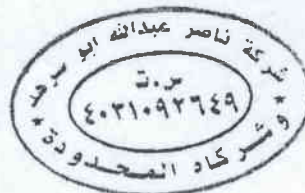 شركة ناصر عبدالله ابو سرهد
س.ت
٤٠٣١٠٩٢٦٤٩
وشركاه المحدودة